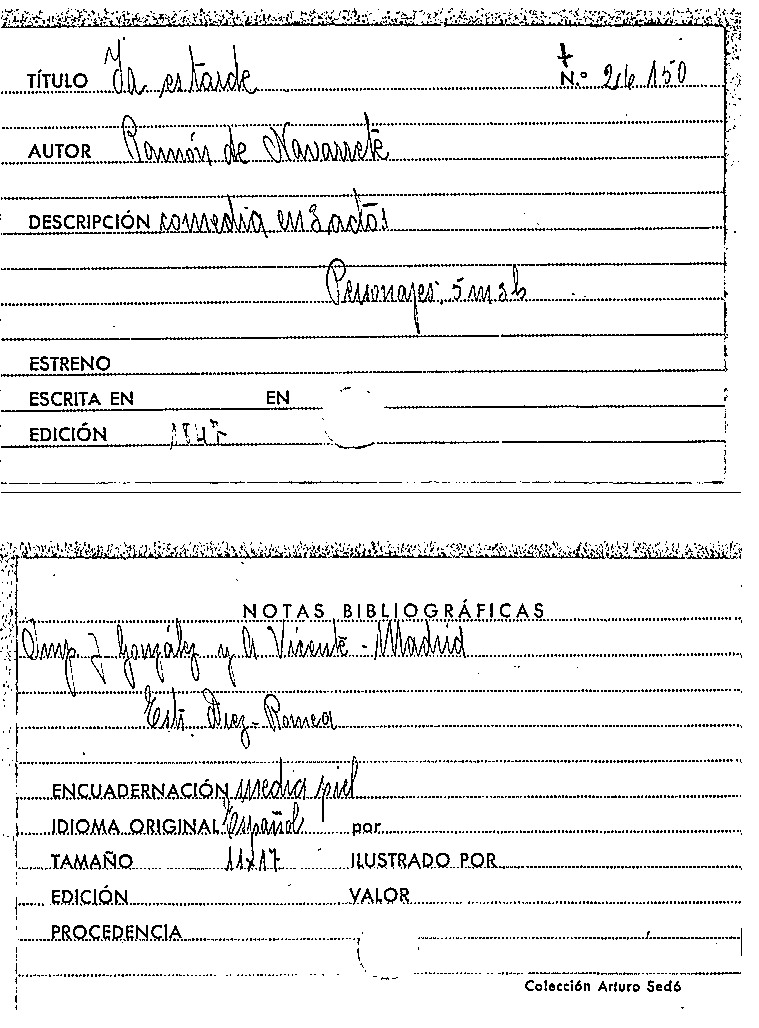 TÍTULO Ya es tarde N.º 26.150
AUTOR Ramón de Navarrete
DESCRIPCIÓN comedia en 3 actos
Personajes, 5 m 3 h
ESTRENO
ESCRITA EN EN
EDICIÓN 1847
NOTAS BIBLIOGRÁFICAS
Imp J González y A Vicente - Madrid
Estr. Diez-Romea
ENCUADERNACIÓN media piel
IDIOMA ORIGINAL Español por
TAMAÑO 11x17 ILUSTRADO POR
EDICIÓN VALOR
PROCEDENCIA
Colección Arturo Sedó